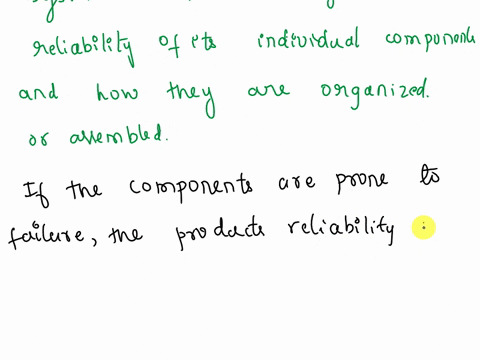 reliability of its individual components
and how they are organized.
or assembled.
If the components are prone to
failure, the products reliability